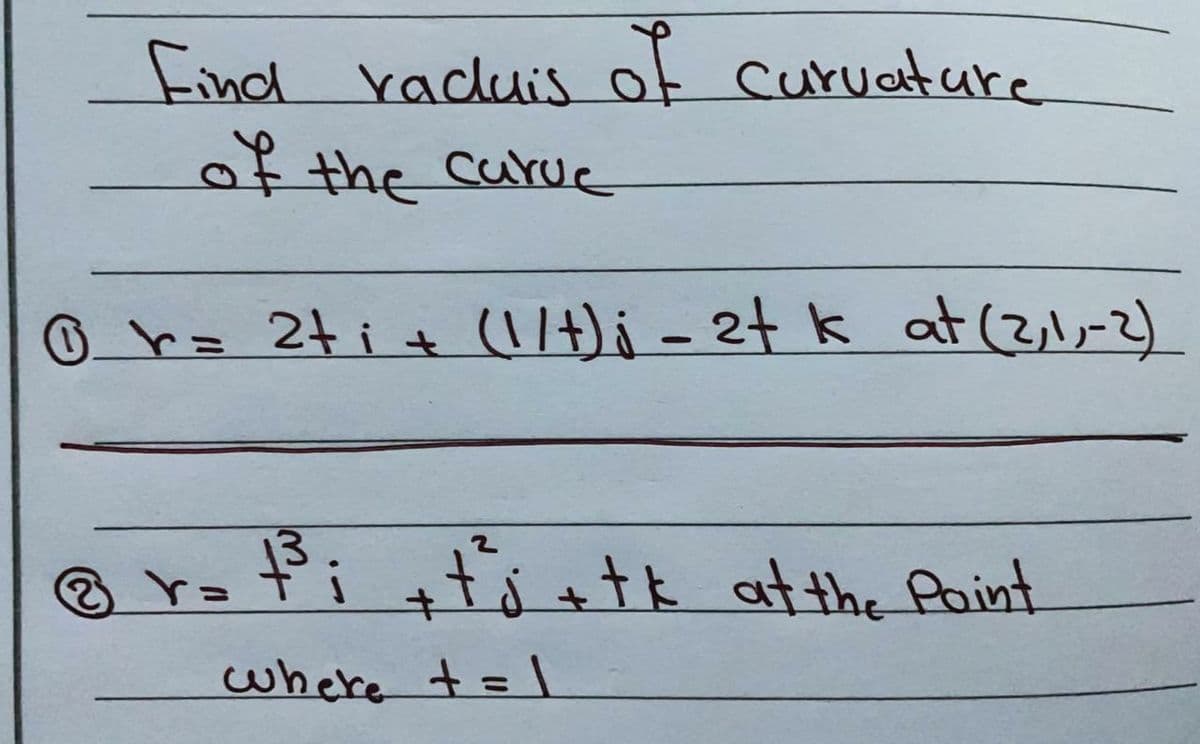 Find raduis of curvature
of the curve
① r = 2t i + (1/t) j - 2t k at (2,1,-2)
② r = t³ i + t² j + t k at the Point
where t = 1